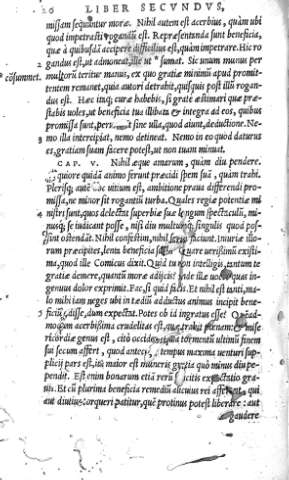 20 LIBER SECVNDVS,
missam sequuntur moræ. Nihil autem est acerbius, quàm ubi
quod impetrasti rogandum est. Repræsentanda sunt beneficia,
quæ à quibusdã accipere difficilius est, quàm impetrare. Hic ro
gandus est, ut admoneat, ille ut cõsummet. Sic unum munus per
cõsummet. multorũ teritur manus, ex quo gratiæ minimũ apud promit-
tentem remanet, quia autori detrahit, quisquis post illũ rogan-
dus est. Hæc itaq; curæ habebis, si gratè æstimari quæ præ-
stabis uoles, ut beneficia tua illibata & integra ad eos, quibus
promissa sunt, perueniant sine ulla, quod aiunt, deductione. Ne-
mo illa intercipiat, nemo detineat. Nemo in eo quod daturus
es, gratiam suam facere potest, ut non tuam minuat.
CAP. V. Nihil æque amarum, quàm diu pendere.
quiore quidã animo ferunt præcidi spem suã, quàm trahi.
Plerisq; autẽ hoc uitium est, ambitione praua differendi promis-
sa, ne minor sit rogantiũ turba. Quales regiæ potentiæ mi
nistri sunt, quos delectat superbiæ suæ longum spectaculũ, mi-
nusq; se iudicant posse, nisi diu multumq; singulis quod pos-
sint ostendãt. Nihil confestim, nihil semel faciunt. Iniuriæ illo-
rum præcipites, lenta beneficia sunt. Quare uerissimũ existi-
ma, quod ille Comicus dixit. Quid tu non intelligis, tantum te
gratiæ demere, quantũ moræ adijcis? Inde illæ uoces quas in-
genuus dolor exprimit. Fac, si quid facis. Et nihil est tanti, ma-
lo mihi iam neges ubi in tædiũ adductus animus incipit bene-
ficiũ odisse, dum expectat. Potes ob id ingratus esse? Quẽad-
modum acerbissima crudelitas est, quæ trahit pœnam, & mise
ricordiæ genus est, citò occidere, quia tormentũ ultimũ finem
sui secum affert, quod antecedit tempus maxima uenturi sup-
plicij pars est, ita maior est muneris gratia quò minus diu pe-
pendit. Est enim bonarum etiã rerũ sollicitis expectatio gra-
uis. Et cũ plurima beneficia remediũ alicuius rei afferant, qui
aut diutius torqueri patitur, què protinus potest liberare: aut
gaudere